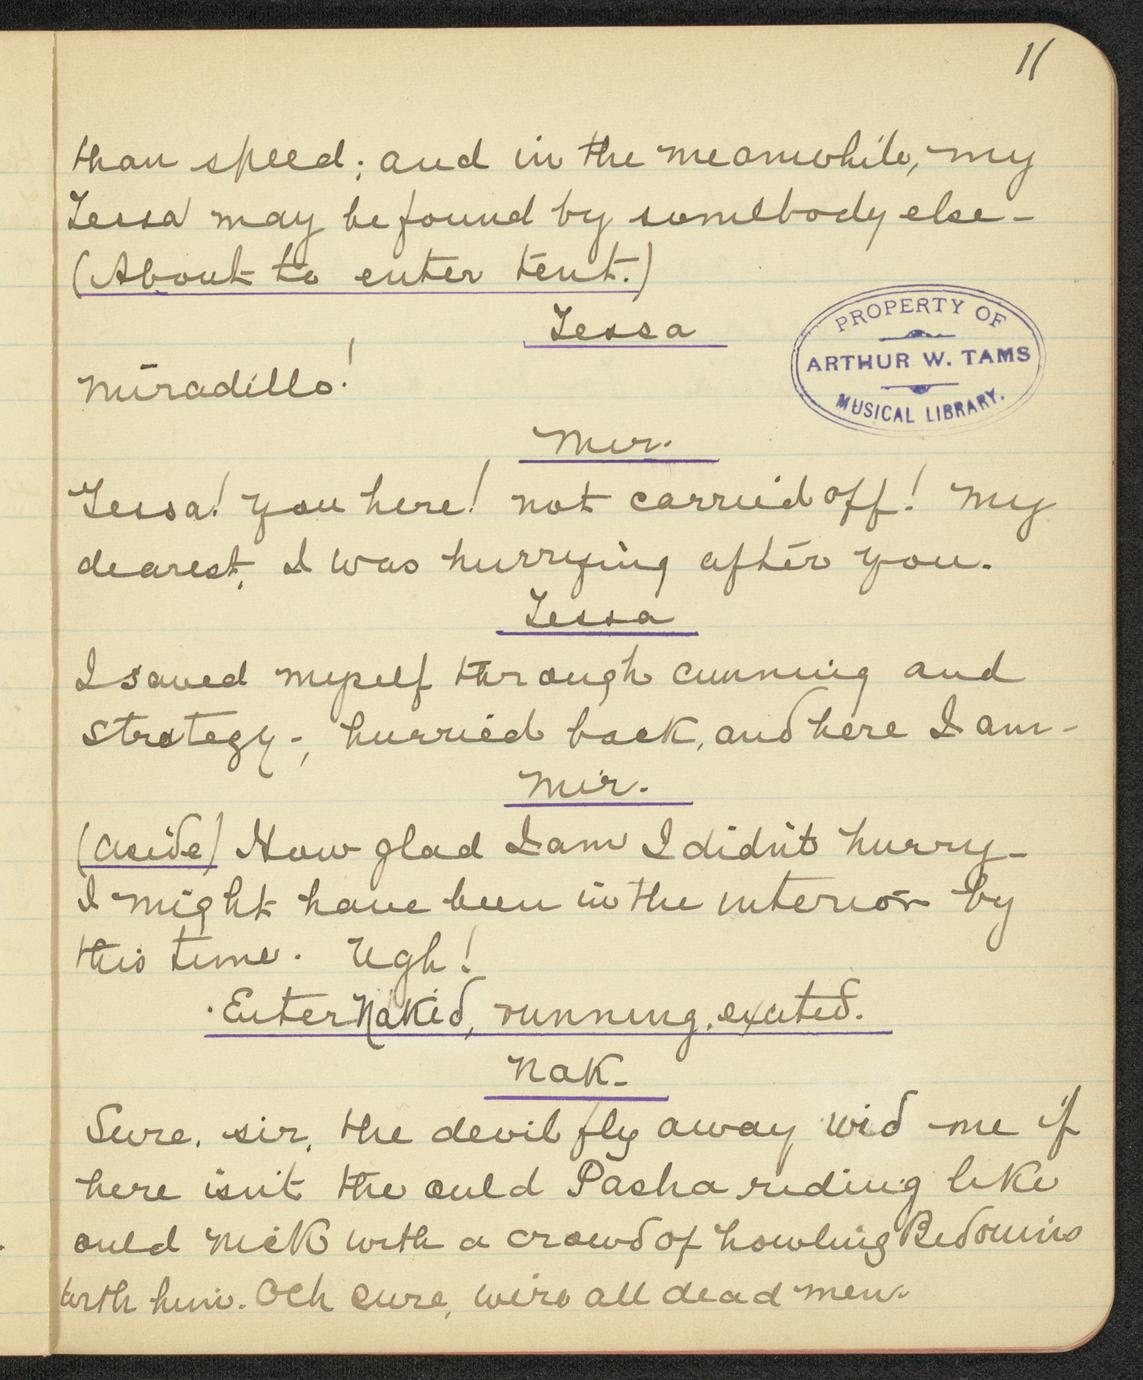 11
than speed; and in the meanwhile, my
Tessa may be found by somebody else-
(About to enter tent.)
Tessa
PROPERTY OF
ARTHUR W. TAMS
MUSICAL LIBRARY.
Miradillo!
Mir.
Tessa! You here! not carried off! My
dearest, I was hurrying after you.
Tessa
I saved myself through cunning and
strategy-, hurried back, and here I am-
Mir.
(aside) How glad I am I didn't hurry-
I might have been in the interior by
this time. Ugh!
Enter Nakid, running, excited.
Nak-
Sure, sir, the devil fly away wid me if
here isn't the ould Pasha riding like
ould Nick with a crowd of howling Bedouins
with him. Och sure, we're all dead men.